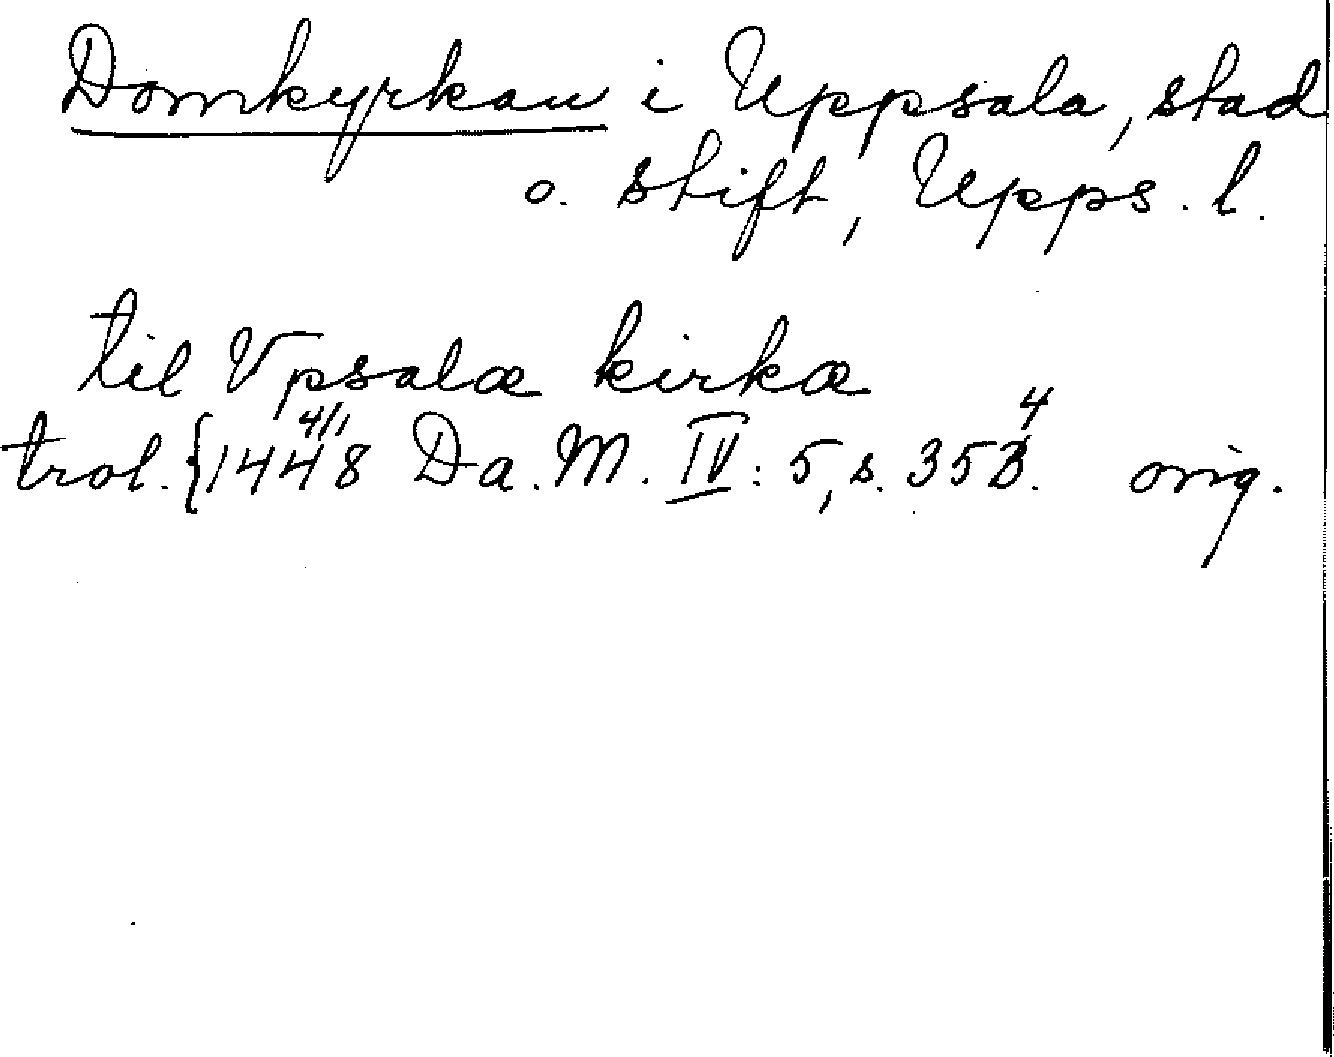 Domkyrkan i Uppsala, stad
o. stift, Upps. l.
til Vpsalæ kirkæ
trol. {1448 4/1 Da. M. IV: 5, s. 354. orig.